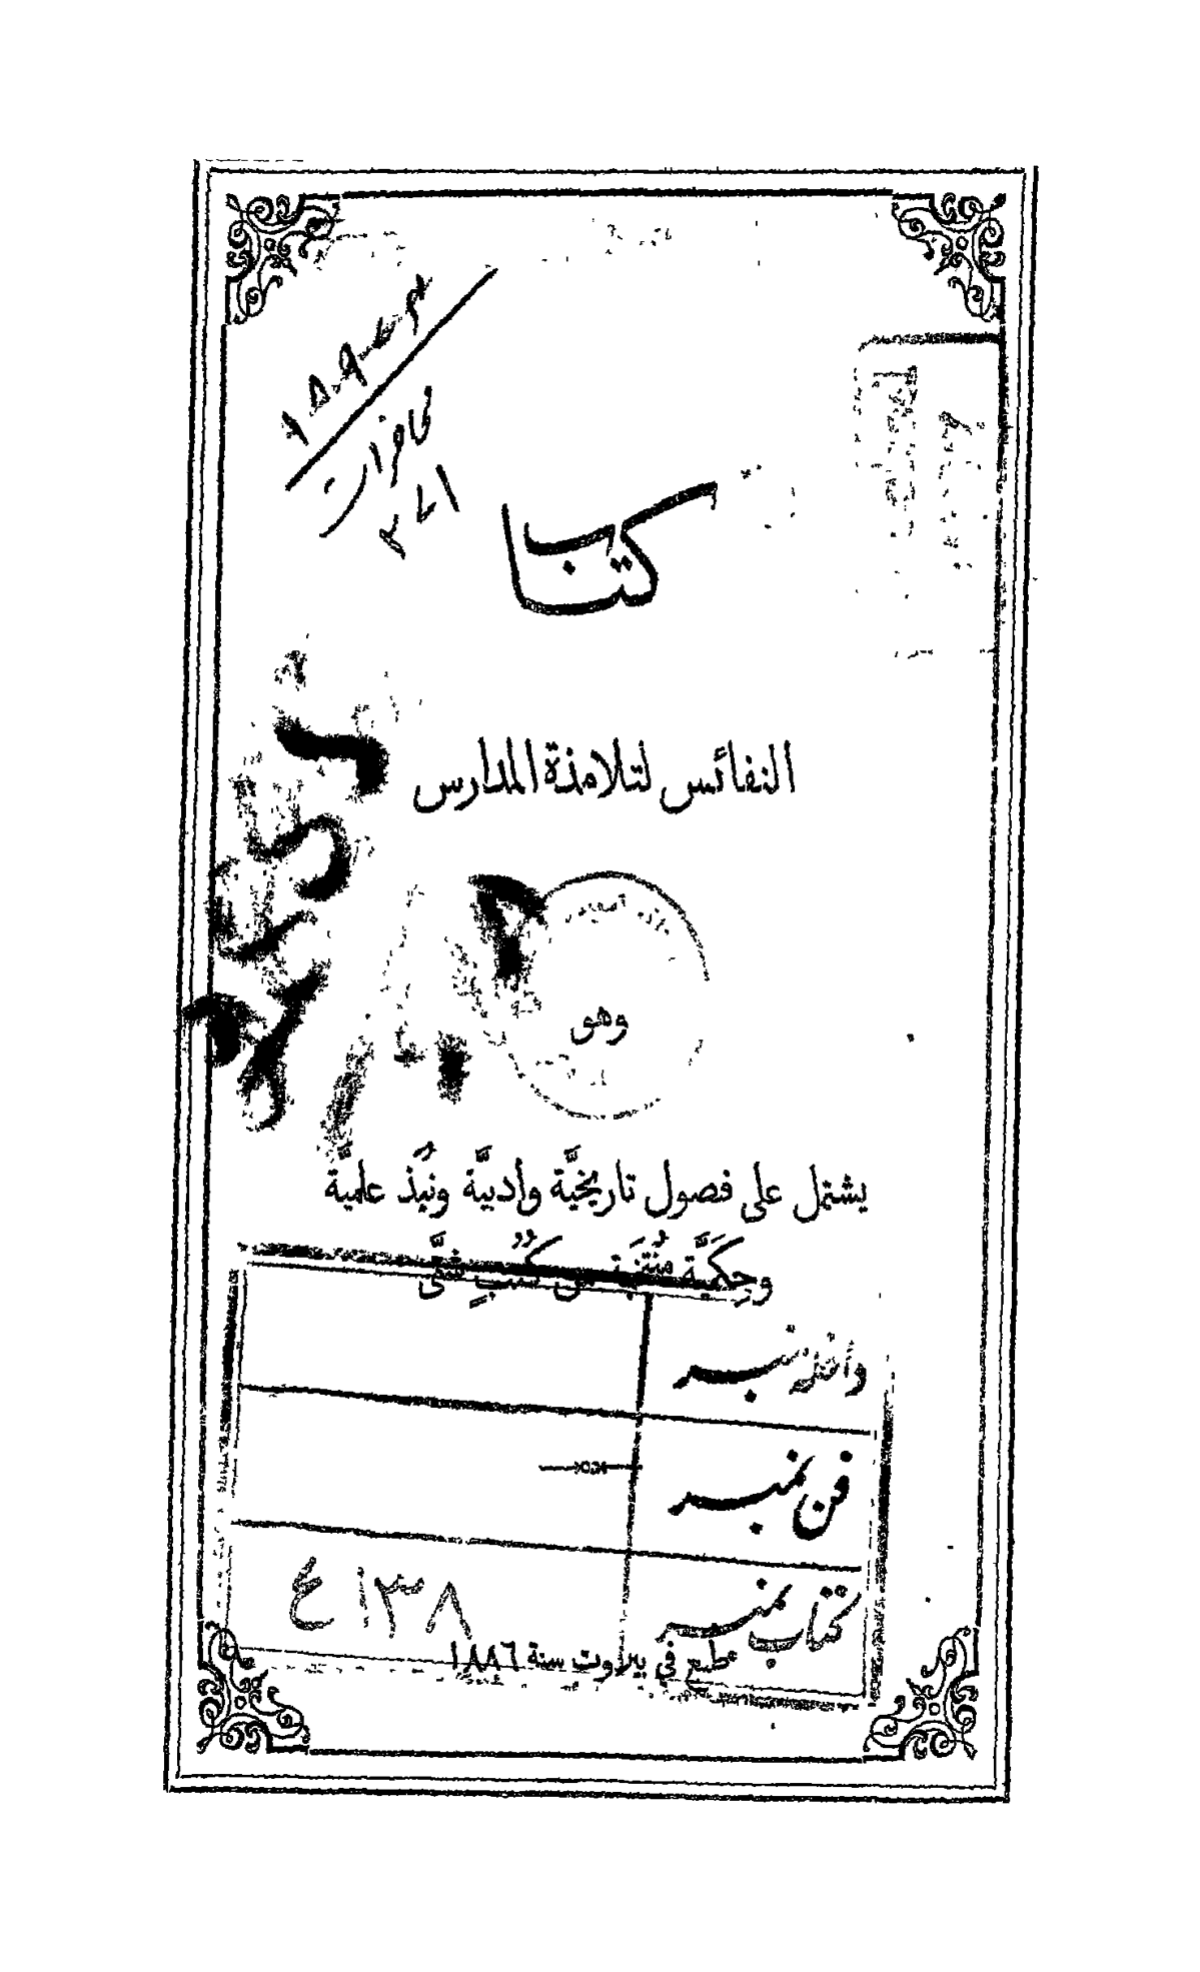 محاضرات
كتاب
النفائس لتلامذة المدارس
وهو
يشتمل على فصول تاريخيَّة وأدبيَّة ونُبَذ علميَّة
وحِكَمِيَّة مُنتَخَبة من كُتُبٍ شتَّى
داخلہ نمبر
فن نمبر
كتاب نمبر ٤١٣٨
طبع في بيروت سنة ١٨٨٦